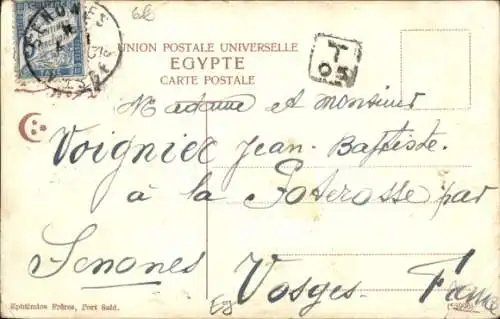 6b
SENONES
VOSGES
UNION POSTALE UNIVERSELLE
EGYPTE
CARTE POSTALE
T
05
Madame et monsieur
Voignier Jean-Baptiste
à la Poterosse par
Senones Vosges. France
Ephtimios Frères, Port Said.